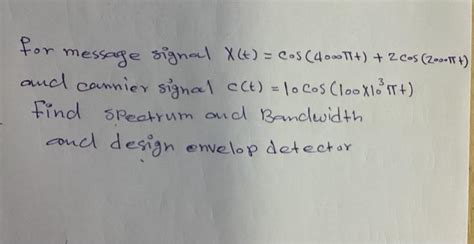 for message signal X(t) = cos(4000πt) + 2 cos(2000πt)
and carrier signal c(t) = 10 cos(100x10³πt)
find spectrum and Bandwidth
and design envelop detector